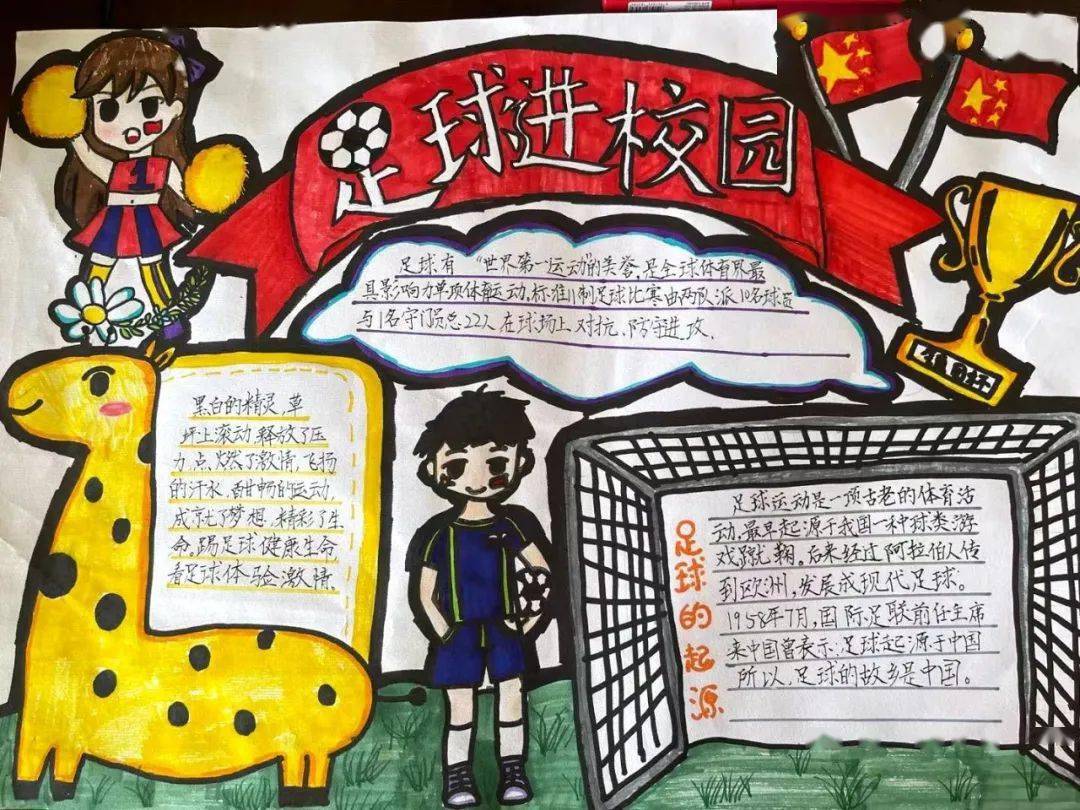 足球进校园
足球有“世界第一运动”的美誉,是全球体育界最
具影响力单项体育运动.标准11制足球比赛由两队派10名球员
与1名守门员总22人在球场上对抗、防守进攻.
黑白的精灵,草
坪上滚动释放了压
力,点燃了激情,飞扬
的汗水,酣畅的运动,
成就了梦想,精彩了生
命。踢足球健康生命
看足球体验激情.
足球的起源
足球运动是一项古老的体育活
动.最早起源于我国一种球类游
戏蹴鞠。后来经过阿拉伯人传
到欧洲,发展成现代足球。
1958年7月,国际足联前任主席
来中国曾表示:足球起源于中国
所以,足球的故乡是中国。
1